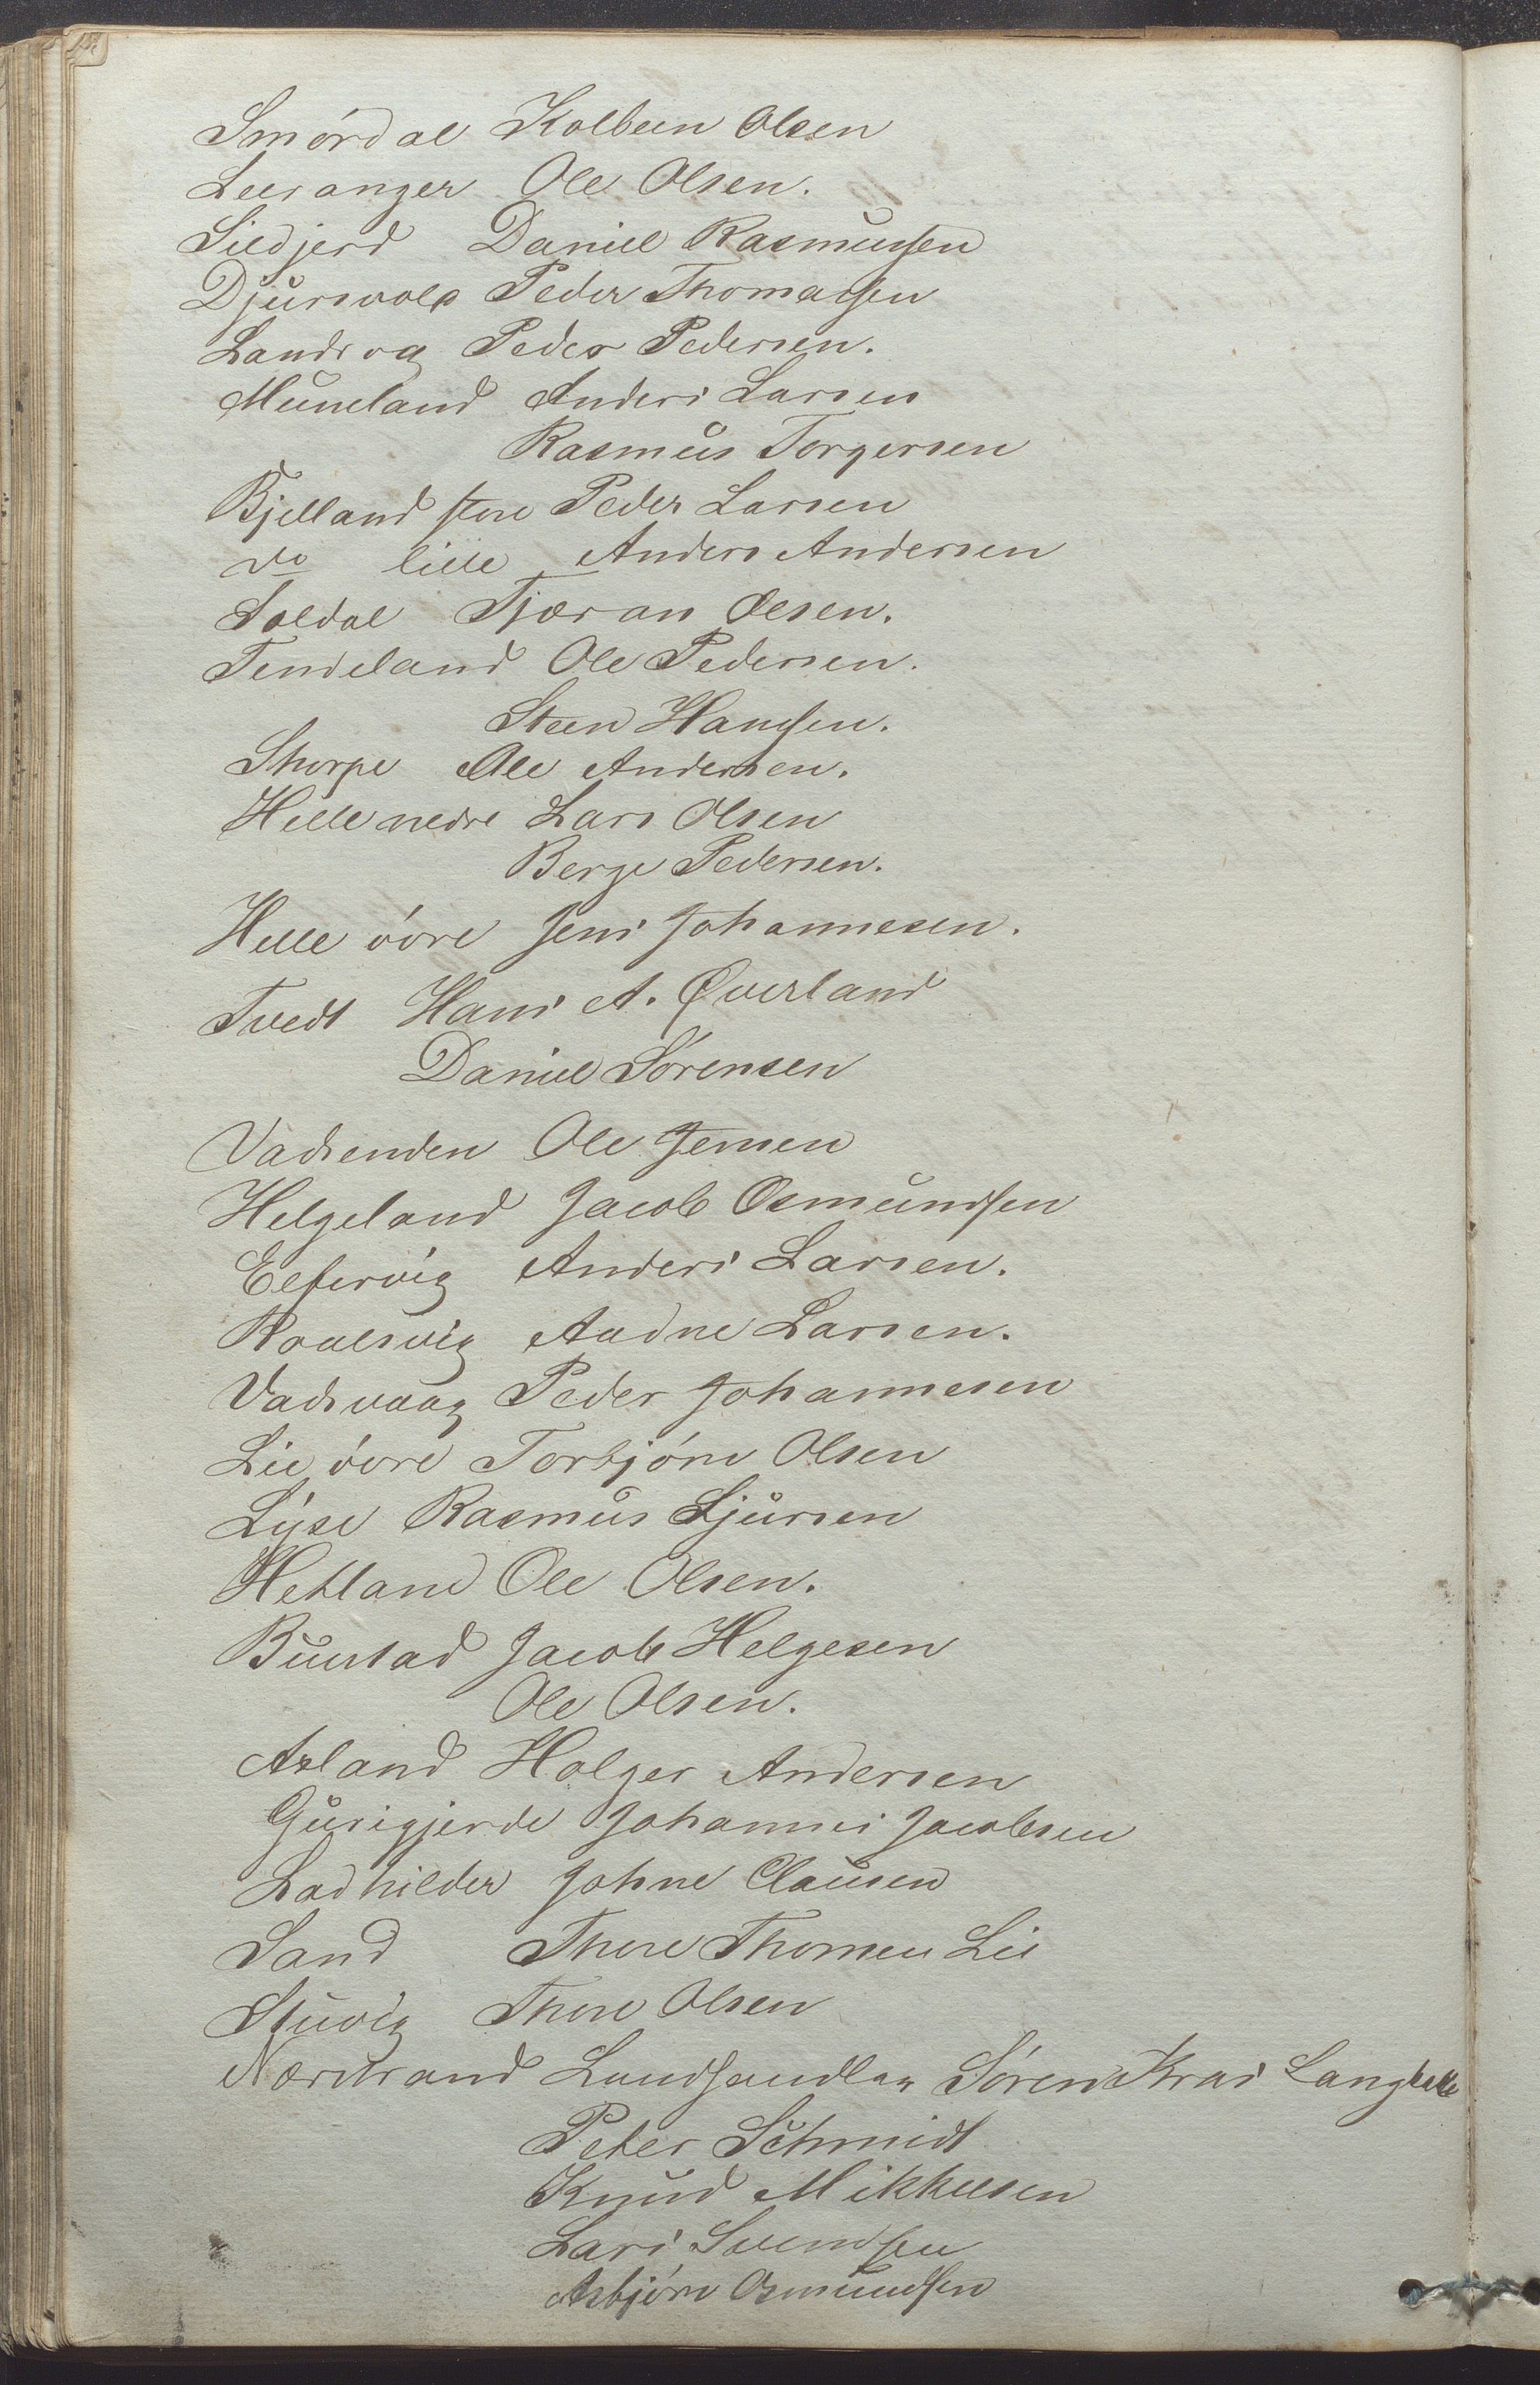 Smørdal Kolbeen Olsen
Leeranger Ole Olsen.
Sildjerd Daniel Rasmussen
Djursvold Peder Thomassen
Landrog Peder Pedersen.
Muneland Anders Larsen
Rasmus Torgersen
Bjelland store Peder Larsen
do lille Anders Andersen
Soldal Tjøran Olsen.
Tendeland Ole Pedersen.
Steen Hansen.
Thorpe Ole Andersen.
Helle nedre Lars Olsen
Berge Pedersen.
Helle övre Jens Johannesen.
Tvedt Hans A. Qverland
Daniel Sörensen
Vadsenden Ole Jensen
Helgeland Jacob Osmundsen
Elfervig Anders Larsen.
Roalsvig Audne Larsen.
Vadsvaag Peder Johannesen
Lie övre Torbjörn Olsen
Lyse Rasmus Sjursen
Hetland Ole Olsen.
Buestad Jacob Helgesen
Ole Olsen.
Arland Holger Andersen
Gurigjerde Johannes Jacobsen
Ladhilder Johne Clausen
Sand Thore Thomsen Lie
Stuvig Thore Olsen
Nærstrand Landhandler Sören Kras Langbakke
Peter Schmidt
Knud Mikkelsen
Lars Svendsen
Asbjörn Osmundsen